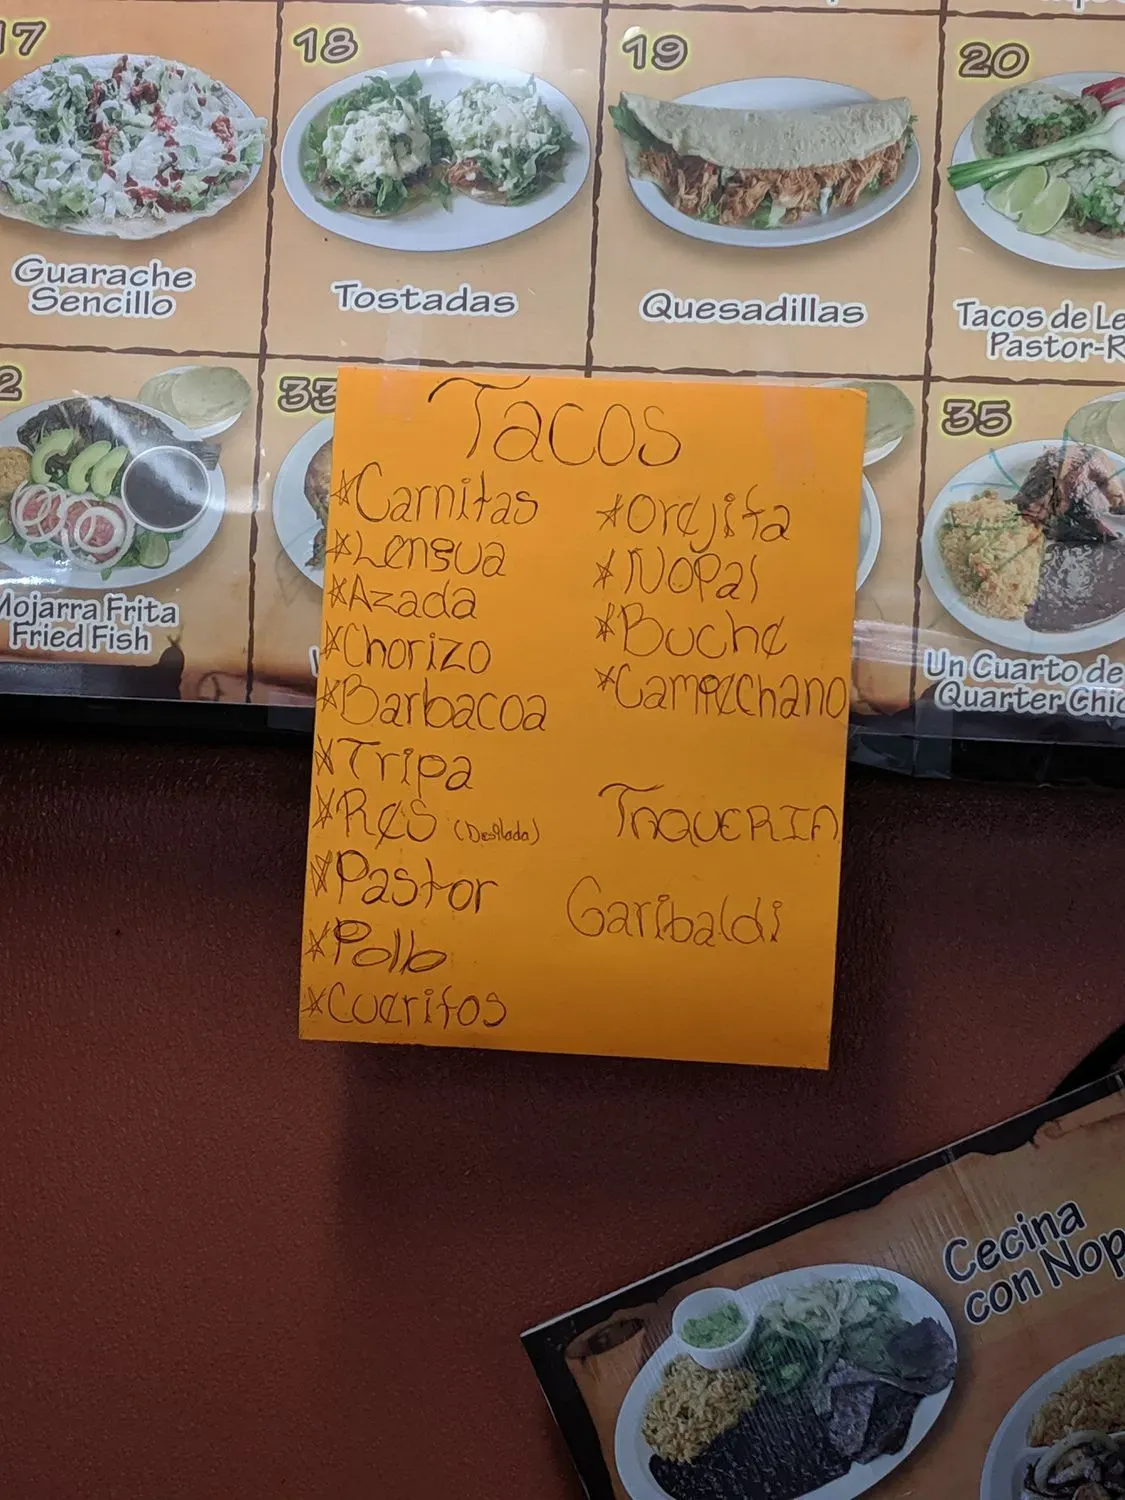 17
18
19
20
Guarache
Sencillo
Tostadas
Quesadillas
Tacos de Le
Pastor-R
2
33
35
Mojarra Frita
Fried Fish
Un Cuarto de
Quarter Chic
Tacos
*Carnitas
*Lengua
*Azada
*Chorizo
*Barbacoa
*Tripa
*Res (Desilada)
*Pastor
*Pollo
*Cueritos
*Orejita
*Nopal
*Buche
*Campechano
TAQUERIA
Garibaldi
Cecina
con Nop